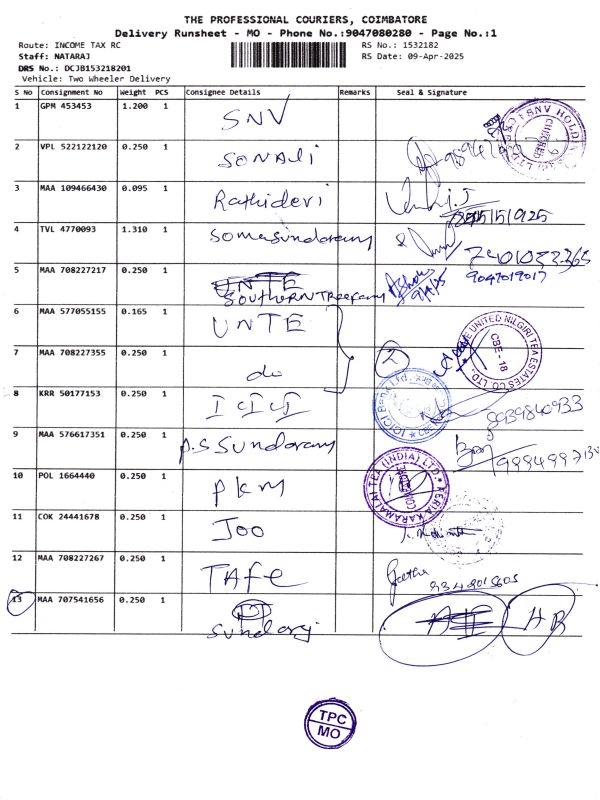 THE PROFESSIONAL COURIERS, COIMBATORE
Delivery Runsheet - MO - Phone No.:9047080280 - Page No.:1
Route: INCOME TAX RC
RS No.: 1532182
Staff: NATARAJ
RS Date: 09-Apr-2025
DRS No.: DCJB153218201
Vehicle: Two Wheeler Delivery
S No Consignment No Weight PCS Consignee Details Remarks Seal & Signature
1 GPM 453453 1.200 1 SNV
2 VPL 522122120 0.250 1 SONALi
3 MAA 109466430 0.095 1 Rathidevi
4 TVL 4770093 1.310 1 Somasundaram
5 MAA 708227217 0.250 1 UNTE
Southern Tree farm
9047019017
6 MAA 577055155 0.165 1 UNTE
7 MAA 708227355 0.250 1 do 2
THE UNITED NILGIRI TEA ESTATES CO. LTD. CBE - 18
8 KRR 50177153 0.250 1 ICICI
ICICI Bank Ltd.
8939840933
9 MAA 576617351 0.250 1 P.S Sundaram
10 POL 1664440 0.250 1 PKM
KERIA KARAMALAI TEA (INDIA) LTD.
11 COK 24441678 0.250 1 JOO
12 MAA 708227267 0.250 1 TAFE Geetha
13 MAA 707541656 0.250 1 Sundaraj HB
TPC
MO